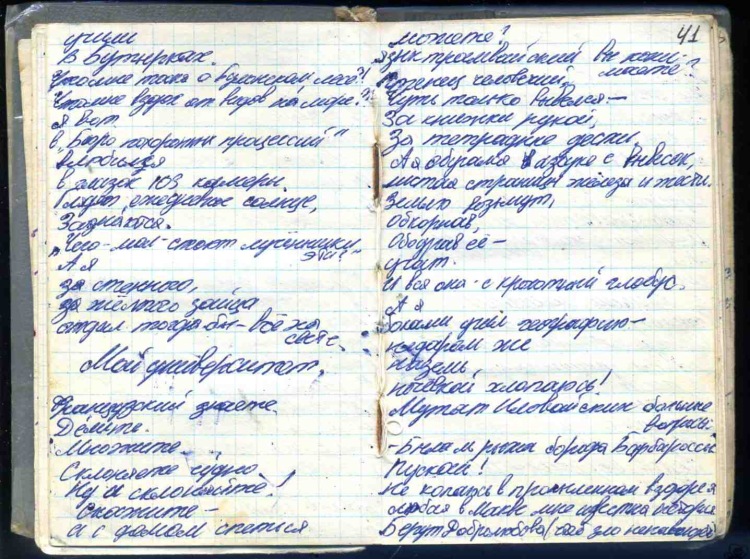 учили
В Бутырках.
Что мне тоска о Булонском лесе?!
Что мне вздох от видов на море?!
Я вот
в "Бюро похоронных процессий"
влюбился
в глазок 103 камеры.
Глядят ежедневное солнце,
Зазнаются.
"Чего-мол-стоят лученышки
эти?"
А я
за стенного,
за жёлтого зайца
отдал тогда-бы-всё на
свете.
Мой университет.
Французский знаете.
Делите.
Множите.
Склоняете чудно.
Ну и склоняйте!
Скажите-
а с домом спеться
можете?
Язык трамвайский вы пони-
маете?
Птенец человечий,
Чуть только вывелся-
За книжки рукой,
За тетрадные дести.
А я обучался азбуке с вывесок,
листая страницы железа и жести.
Землю возьмут,
Обкорнав,
Ободрав её-
учат.
И вся она-с крохотный глобус.
А я
боками учил географию-
недаром же
наземь
ночёвкой хлопаюсь!
Мутят Иловайских больные
вопросы:
-Была ль рыжа борода Барбароссы
Пускай!
Не копаюсь в пропыленном вздоре я
любая в Москве мне известна история
Берут Добролюбова (чтоб зло ненавидеть)
41